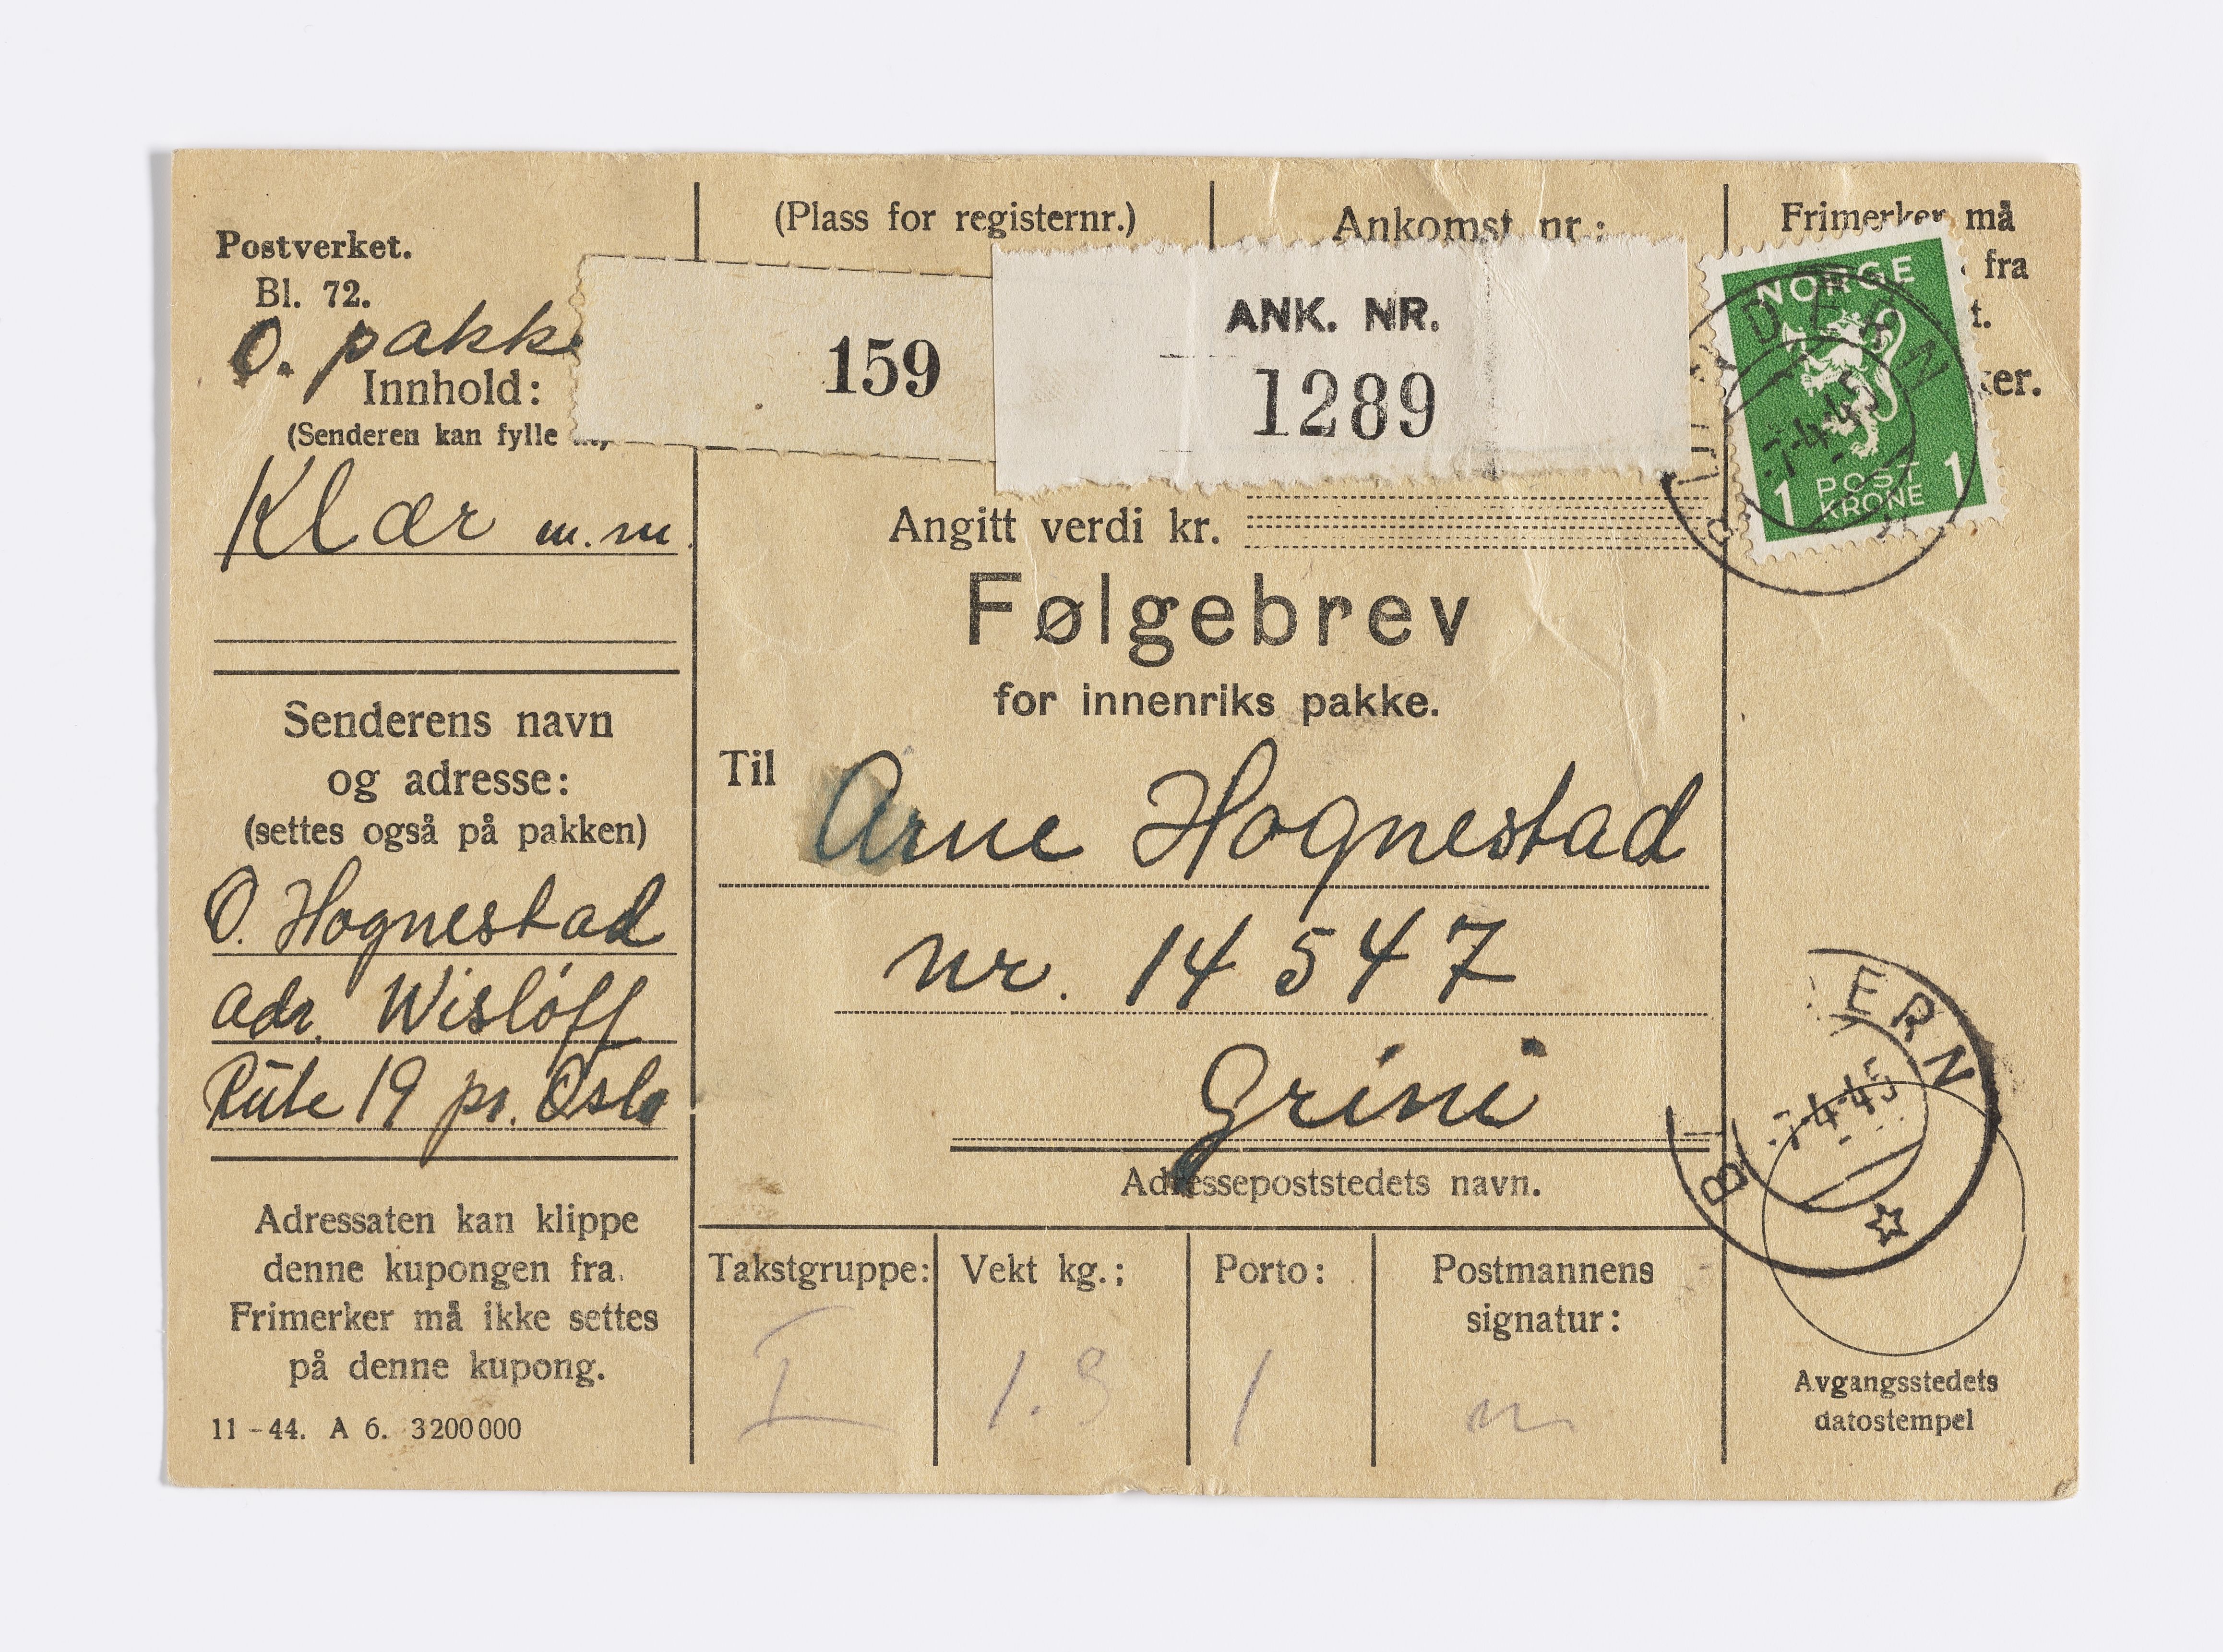 Postverket.
Bl. 72.
O. pakke
Innhold:
(Senderen kan fylle
Klær m.m.
Senderens navn
og adresse:
(settes også på pakken)
O. Hognestad
adr. Wisløff
Rute 19 pr. Oslo
Adressaten kan klippe
denne kupongen fra.
Frimerker må ikke settes
på denne kupong.
11-44. A 6. 3200000
(Plass for registernr.)
159
Ankomst nr.:
ANK. NR.
1289
Angitt verdi kr.
Følgebrev
for innenriks pakke.
Til
Arne Hognestad
nr. 14547
Grini
Adressepoststedets navn.
Takstgruppe:
I
Vekt kg.:
Porto:
1
Postmannens
signatur:
Frimerker må
fra
t.
ker.
NORGE
1 POST 1
KRONE
DERN
-7-4-45
B
ERN
-7-4-45
B
Avgangsstedets
datostempel